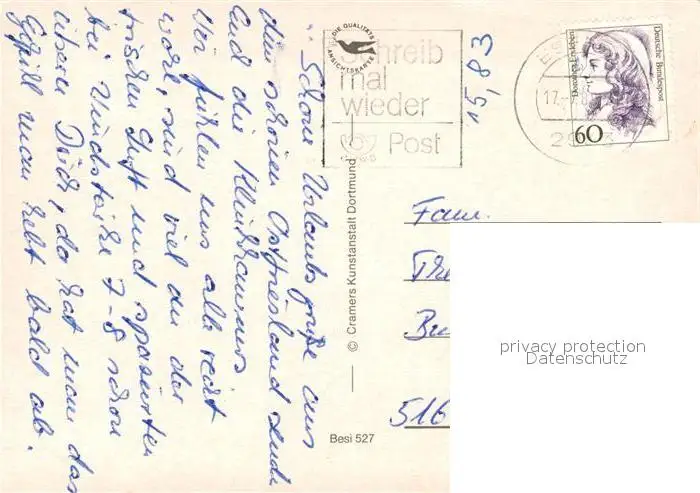 Schöne Urlaubsgrüße aus
dem schönen Ostfriesland sendet
Euch die
Wir fühlen uns alle recht
wohl, sind viel an der
frischen Luft und spazierten
bei Windstärke 7-8 schon
überm Deich, da hat man das
Gefühl man hebt bald ab.
15,83
DIE QUALITÄTS
ANSICHTSKARTE
Schreib
mal
wieder
Post
17.
Deutsche Bundespost
Dorothea Erxleben
60
© Cramers Kunstanstalt Dortmund
Besi 527
Fam.
516
privacy protection
Datenschutz